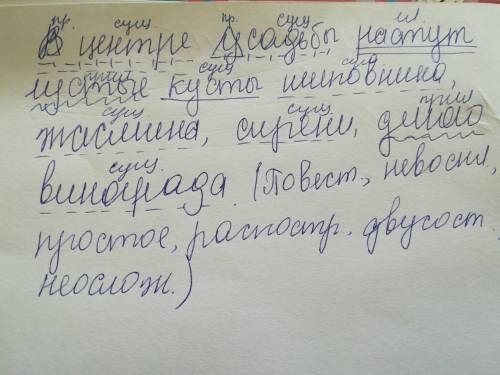 пр. сущ. пр. сущ гл
В центре усадьбы растут
прил сущ сущ
густые кусты шиповника,
сущ сущ прил
жасмина, сирени, дикого
сущ.
винограда. (Повест., невоскл.,
простое, распостр. двусост.
неослож.)